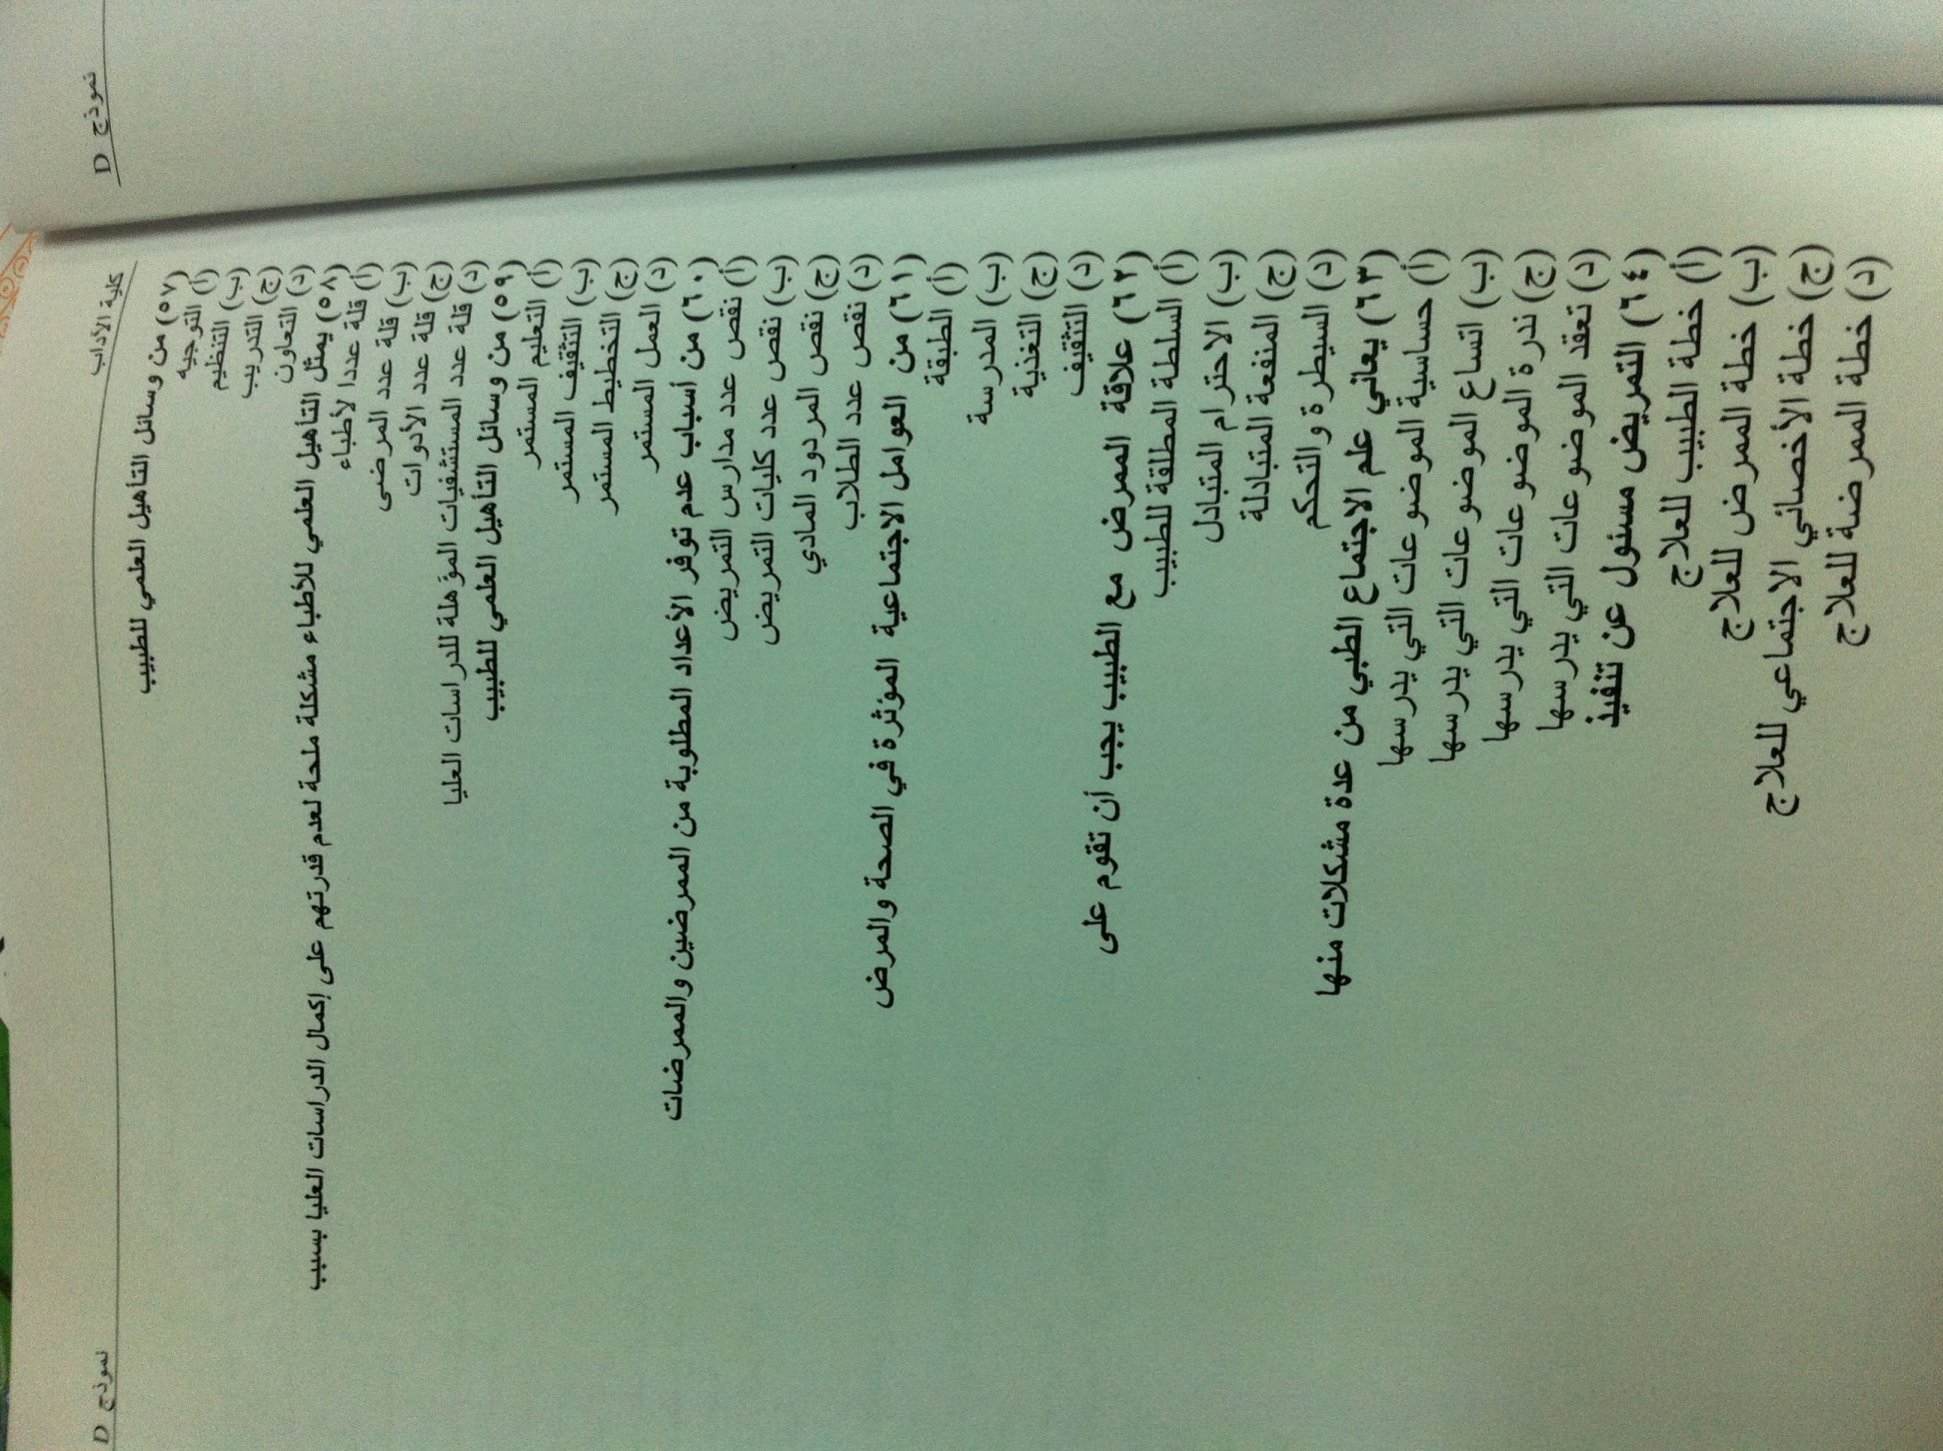 نموذج D
كلية الآداب
نموذج D
(٥٧) من وسائل التأهيل العلمي للطبيب
(أ) التوجيه
(ب) التنظيم
(ج) التدريب
(د) التعاون
(٥٨) يمثل التأهيل العلمي للأطباء مشكلة ملحة لعدم قدرتهم على إكمال الدراسات العليا بسبب
(أ) قلة عددا لأطباء
(ب) قلة عدد المرضى
(ج) قلة عدد الأدوات
(د) قلة عدد المستشفيات المؤهلة للدراسات العليا
(٥٩) من وسائل التأهيل العلمي للطبيب
(أ) التعليم المستمر
(ب) التثقيف المستمر
(ج) التخطيط المستمر
(د) العمل المستمر
(٦٠) من أسباب عدم توفر الأعداد المطلوبة من الممرضين والممرضات
(أ) نقص عدد مدارس التمريض
(ب) نقص عدد كليات التمريض
(ج) نقص المردود المادي
(د) نقص عدد الطلاب
(٦١) من العوامل الاجتماعية المؤثرة في الصحة والمرض
(أ) الطبقة
(ب) المدرسة
(ج) التغذية
(د) التثقيف
(٦٢) علاقة الممرض مع الطبيب يجب أن تقوم على
(أ) السلطة المطلقة للطبيب
(ب) الاحترام المتبادل
(ج) المنفعة المتبادلة
(د) السيطرة والتحكم
(٦٣) يعاني علم الاجتماع الطبي من عدة مشكلات منها
(أ) حساسية الموضوعات التي يدرسها
(ب) اتساع الموضوعات التي يدرسها
(ج) ندرة الموضوعات التي يدرسها
(د) تعقد الموضوعات التي يدرسها
(٦٤) التمريض مسئول عن تنفيذ
(أ) خطة الطبيب للعلاج
(ب) خطة الممرض للعلاج
(ج) خطة الأخصائي الاجتماعي للعلاج
(د) خطة الممرضة للعلاج